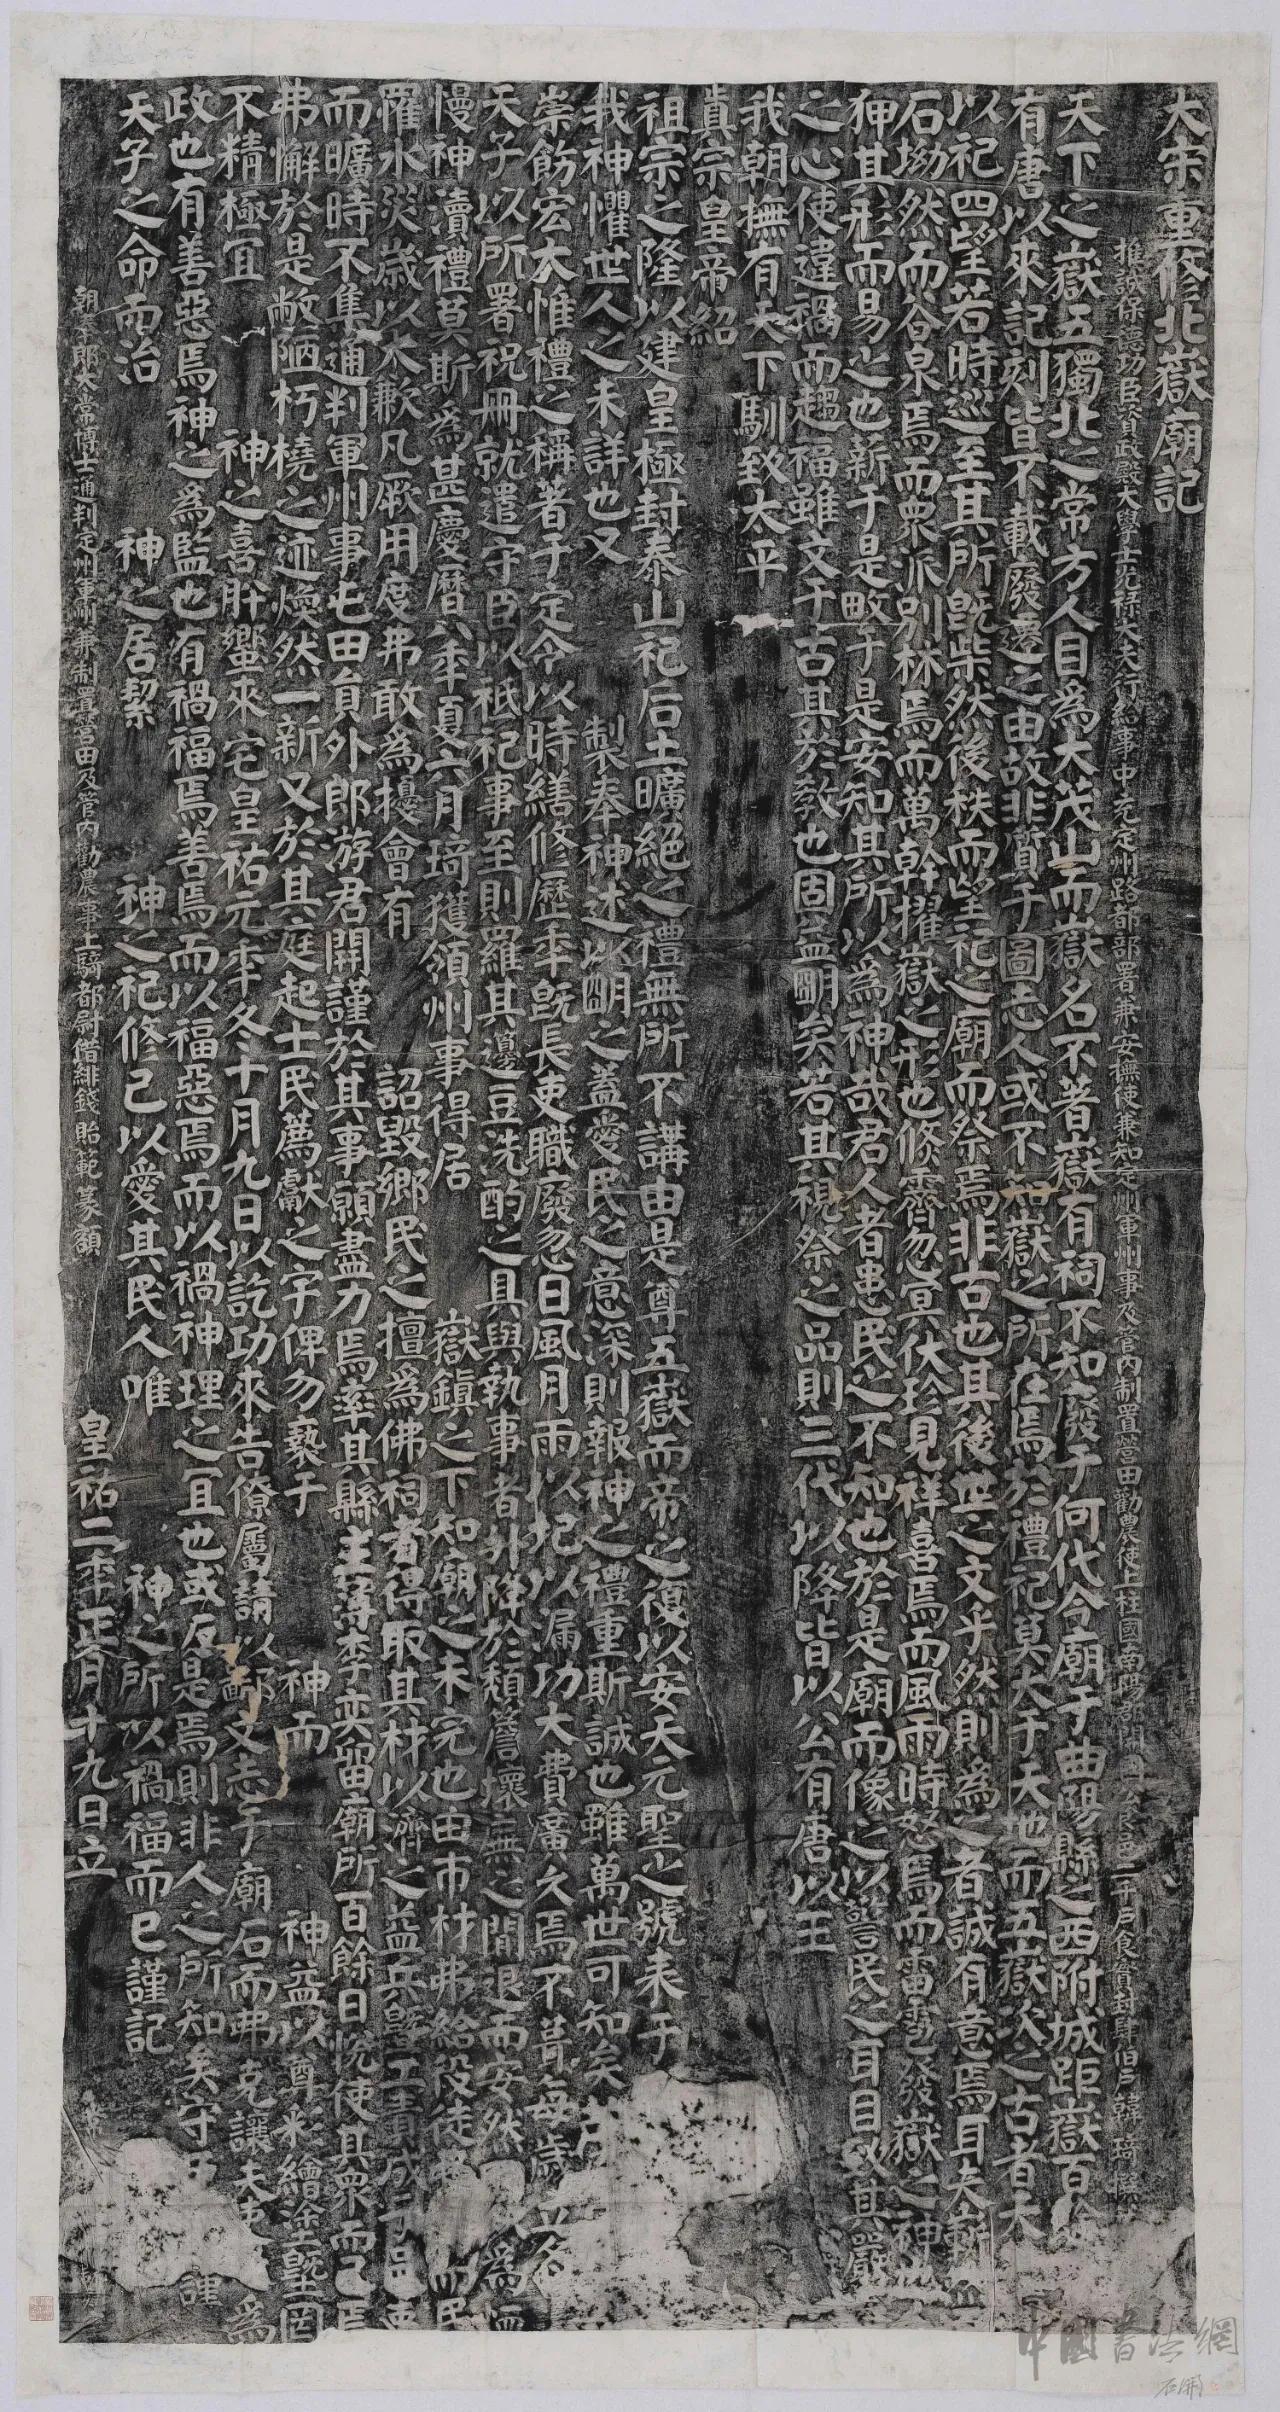 大宋重修北嶽廟記
推誠保德功臣資政殿大學士光祿大夫行給事中充定州路都部署兼安撫使兼知定州軍州事及管內制置營田勸農使上柱國南陽郡開國公食邑二千戶食實封肆伯戶韓琦撰
天下之嶽五獨北之常方人目為大茂山而嶽名不著嶽有祠不知廢于何代今廟于曲陽縣之西附城距嶽百餘
有唐以來記刻皆不載廢遷之由故非質于圖志人或不 嶽之所在焉於禮祀莫大于天地而五嶽次之古者天
以祀四望若時巡至其所旣柴然後秩而望祀之廟而祭焉非古也其後世之文乎然則為之者誠有意焉耳夫嶄
石坳然而谷泉焉而眾派別林焉而萬幹擢嶽之形也倏霽忽冥伏珍見祥喜焉而風雨時怒焉而雷雹發嶽之神
狎其形而易之也新于是畋于是安知其所以為神哉君人者患民之不知也於是廟而像之以警民之耳目 其嚴
之心使違禍而趨福雖文于古其於教也固益明矣若其視祭之品則三代以降皆以公有唐以王
我朝撫有天下馴致太平
真宗皇帝紹
祖宗之隆以建皇極封泰山祀后土曠絕之禮無所不講由是尊五嶽而帝之復以安天元聖之號耒于
我神懼世人之未詳也又 製奉神述以明之蓋愛民之意深則報神之禮重斯誠也雖萬世可知矣
崇飭宏大惟禮之稱著于定令以時繕修歷年旣長吏職廢忽日風月雨以圮以漏功大費廣久焉不葺每歲立冬
天子以所署祝冊就遣守臣以祗祀事至則羅其籩豆洗酌之具與執事者升降於頹簷壞廡之間退而安然 為
慢神瀆禮莫斯為甚慶曆八年夏六月琦獲領州事得居 嶽鎮之下知廟之未完也由市材弗給役徒 民
罹水災歲以大歉凡厥用度弗敢為擾會有 詔毀鄉民之擅為佛祠者得取其材以濟之益兵 工責成于 吏
而曠時不集通判軍州事屯田員外郎游君開謹於其事願盡力焉率其縣主薄李奕留廟所百餘日悅使其眾而已焉
弗懈於是敝陋朽橈之迹煥然一新又於其庭起士民薦獻之宇俾勿褻于 神而 神益以尊彩繪塗墍罔
不精極冝 神之喜肸蠁來宅皇祐元年冬十月九日以訖功來告僚屬請以鄙文志于廟石而弗克讓夫吏 為
政也有善惡焉神之為監也有禍福焉善焉而以福惡焉而以禍神理之冝也或反是焉則非人之所知矣守 謹
天子之命而治 神之居潔 神之祀修已以愛其民人唯 神之所以禍福而已謹記
朝奉郎太常博士通判定州軍州兼制置營田及管內勸農事上騎都尉借緋錢貽範篆額 皇祐二年正月十九日立
中國書法網